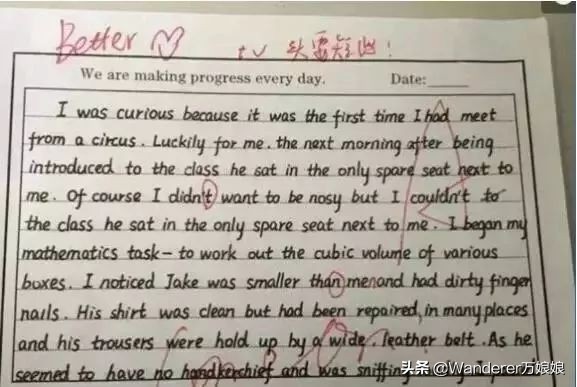 Better
t v 头要短些!
We are making progress every day. Date:
I was curious because it was the first time I had meet
from a circus. Luckily for me. the next morning after being
introduced to the class he sat in the only spare seat next to
me. Of course I didn't want to be nosy but I couldn't to
the class he sat in the only spare seat next to me. I began my
mathematics task - to work out the cubic volume of various
boxes. I noticed Jake was smaller than me and had dirty finger
nails. His shirt was clean but had been repaired, in many places
and his trousers were hold up by a wide, leather belt. As he
seemed to have no handkerchief and was sniffing
头条 @Wanderer万娘娘